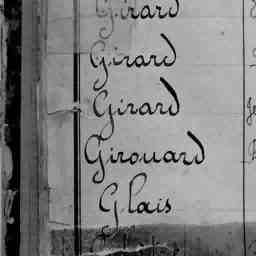 Girard
Girard
Girard
Girouard
Glais